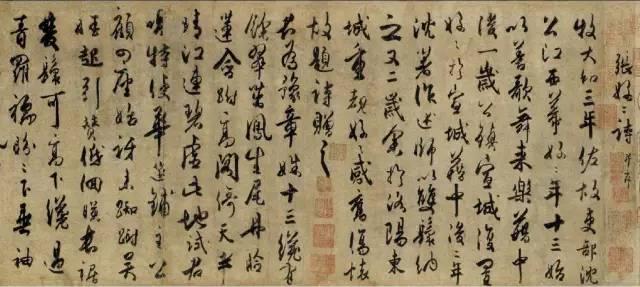 張好々詩 并序
牧大和三年佐故吏部沈
公江西幕好々年十三始
以善歌舞來樂籍中
後一歲公鎮宣城復置
好々於宣城籍中後二年
沈著作述師以雙鬟納
之又二歲余於洛陽東
城重覩好々感舊傷懷
故題詩贈之
君為豫章姝十三纔有
餘翠茁鳳生尾丹臉
蓮含跗高閣倚天半
晴江連碧虛此地試君
唱特使華筵鋪主公
顧四座始訝來踟躕吳
娃起引贊低佪暎長裾
雙鬟可高下纔過
青羅襦盼々下垂袖